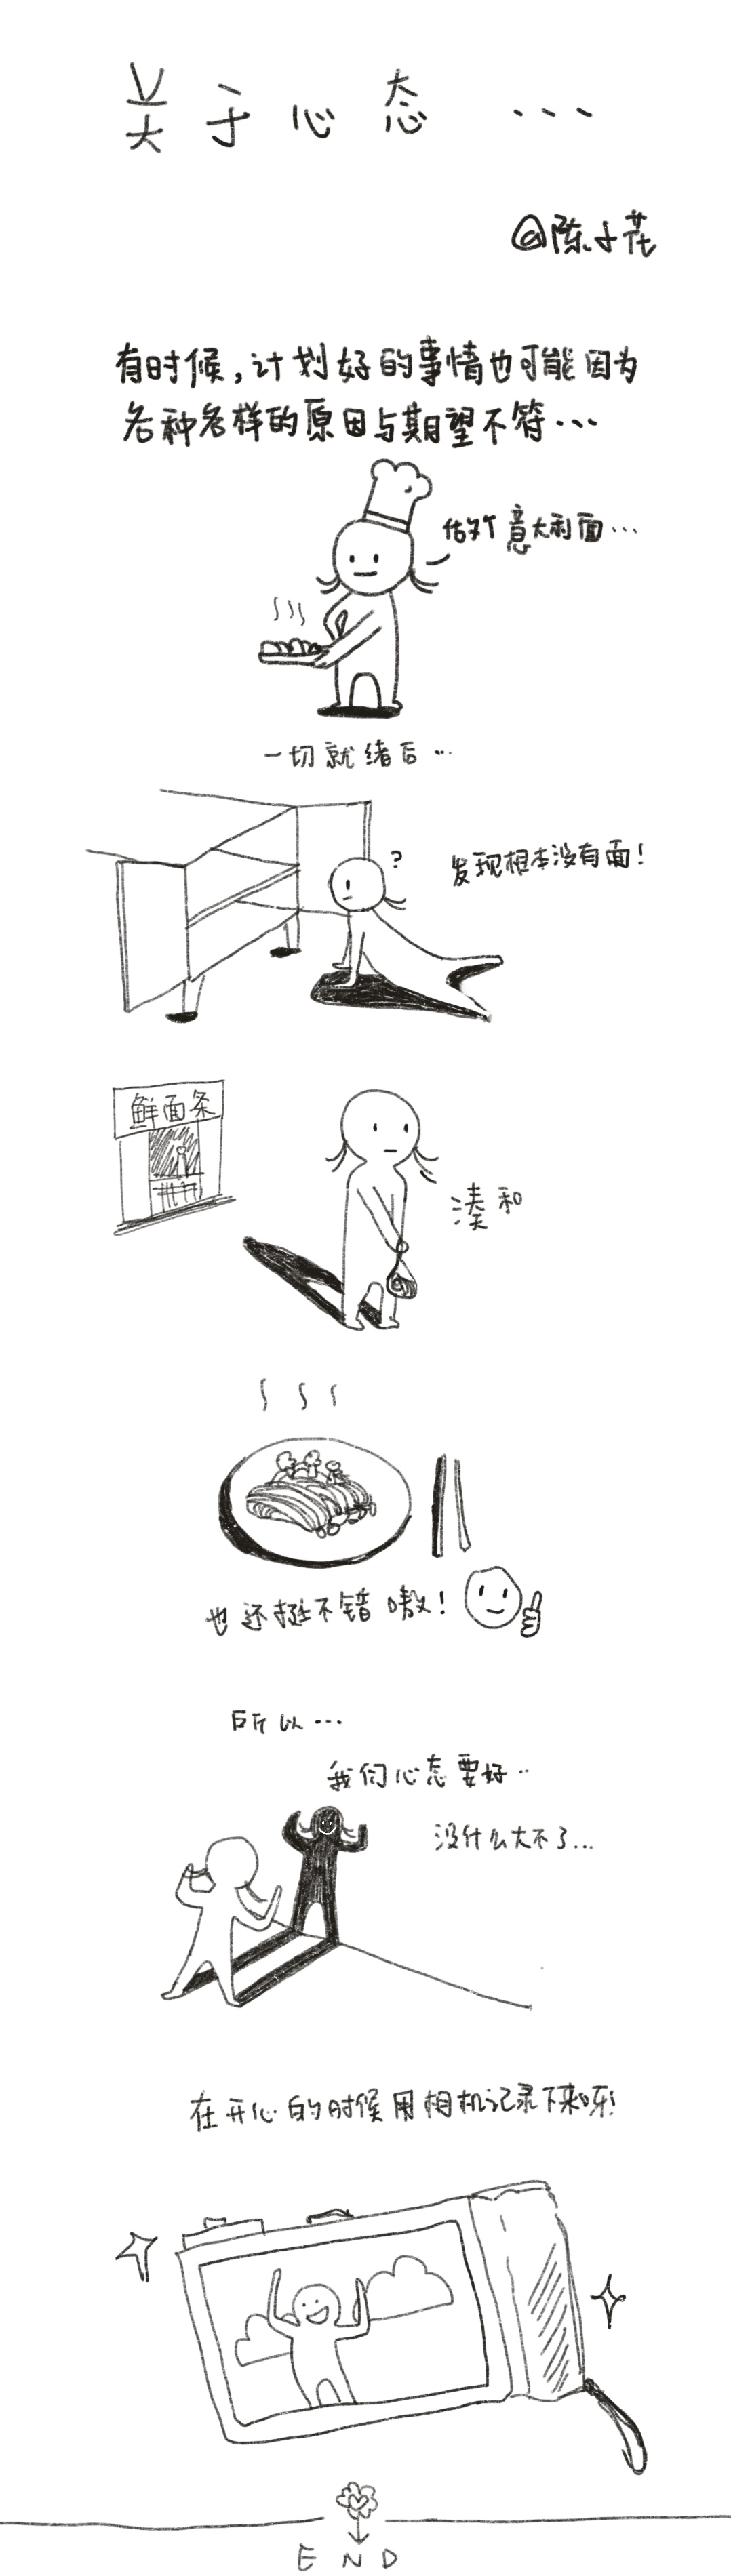 关于心态...
@陈子花
有时候,计划好的事情也可能因为
各种各样的原因与期望不符...
做个意大利面...
一切就绪后...
?
发现根本没有面!
鲜面条
凑和
也还挺不错嗷!
所以...
我们心态要好..
没什么大不了...
在开心的时候用相机记录下来呀!
END